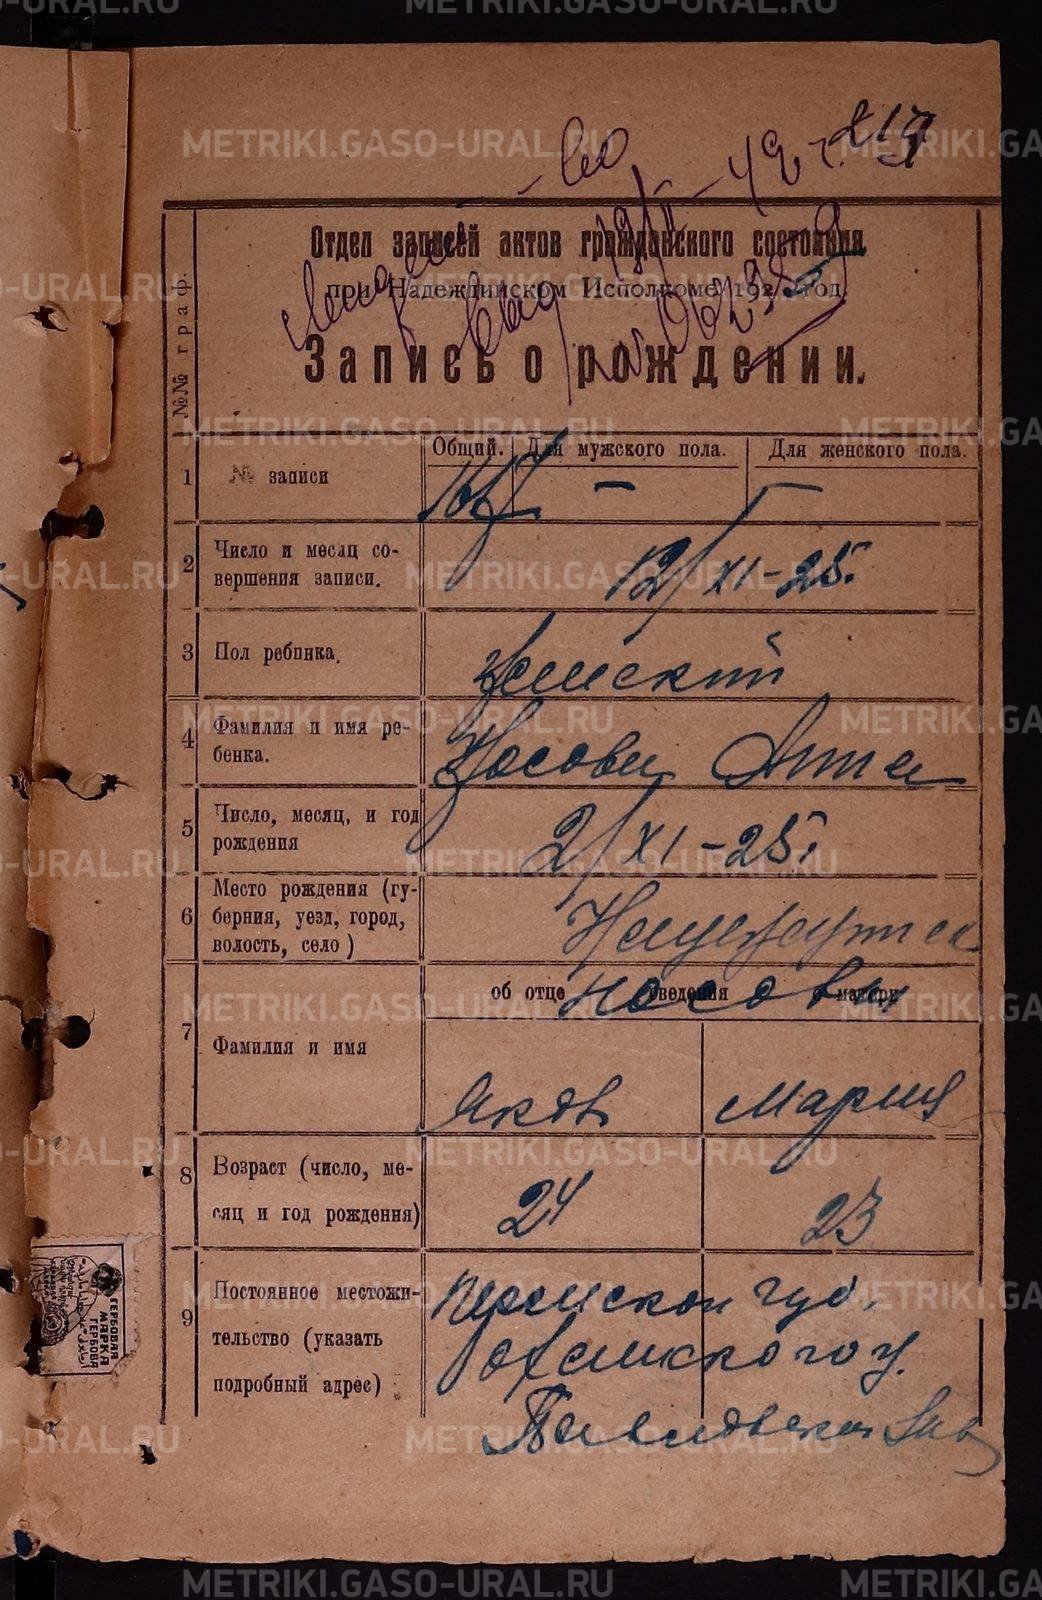 METRIKI.GASO-URAL.RU
819
- во 19/II - 42 г.
Отдел записей актов гражданского состояния
при Надеждинском Исполкоме, 1925 год.
Запись о рождении.
№№ граф.
Общий. Для мужского пола. Для женского пола.
1 № записи - -
2 Число и месяц со-
вершения записи. 12/XI-25.
3 Пол ребенка. женский
4 Фамилия и имя ре-
бенка. Носова Анна
5 Число, месяц, и год
рождения 2/XI-25г.
6 Место рождения (гу-
берния, уезд, город,
волость, село)
об отце сведения о матери
Носовы
7 Фамилия и имя Яков Мария
8 Возраст (число, ме-
сяц и год рождения) 24 23
9 Постоянное местожи-
тельство (указать
подробный адрес)
Пермской губ.
Оханского у.
Павловский Зав
ГЕРБОВАЯ
МАРКА